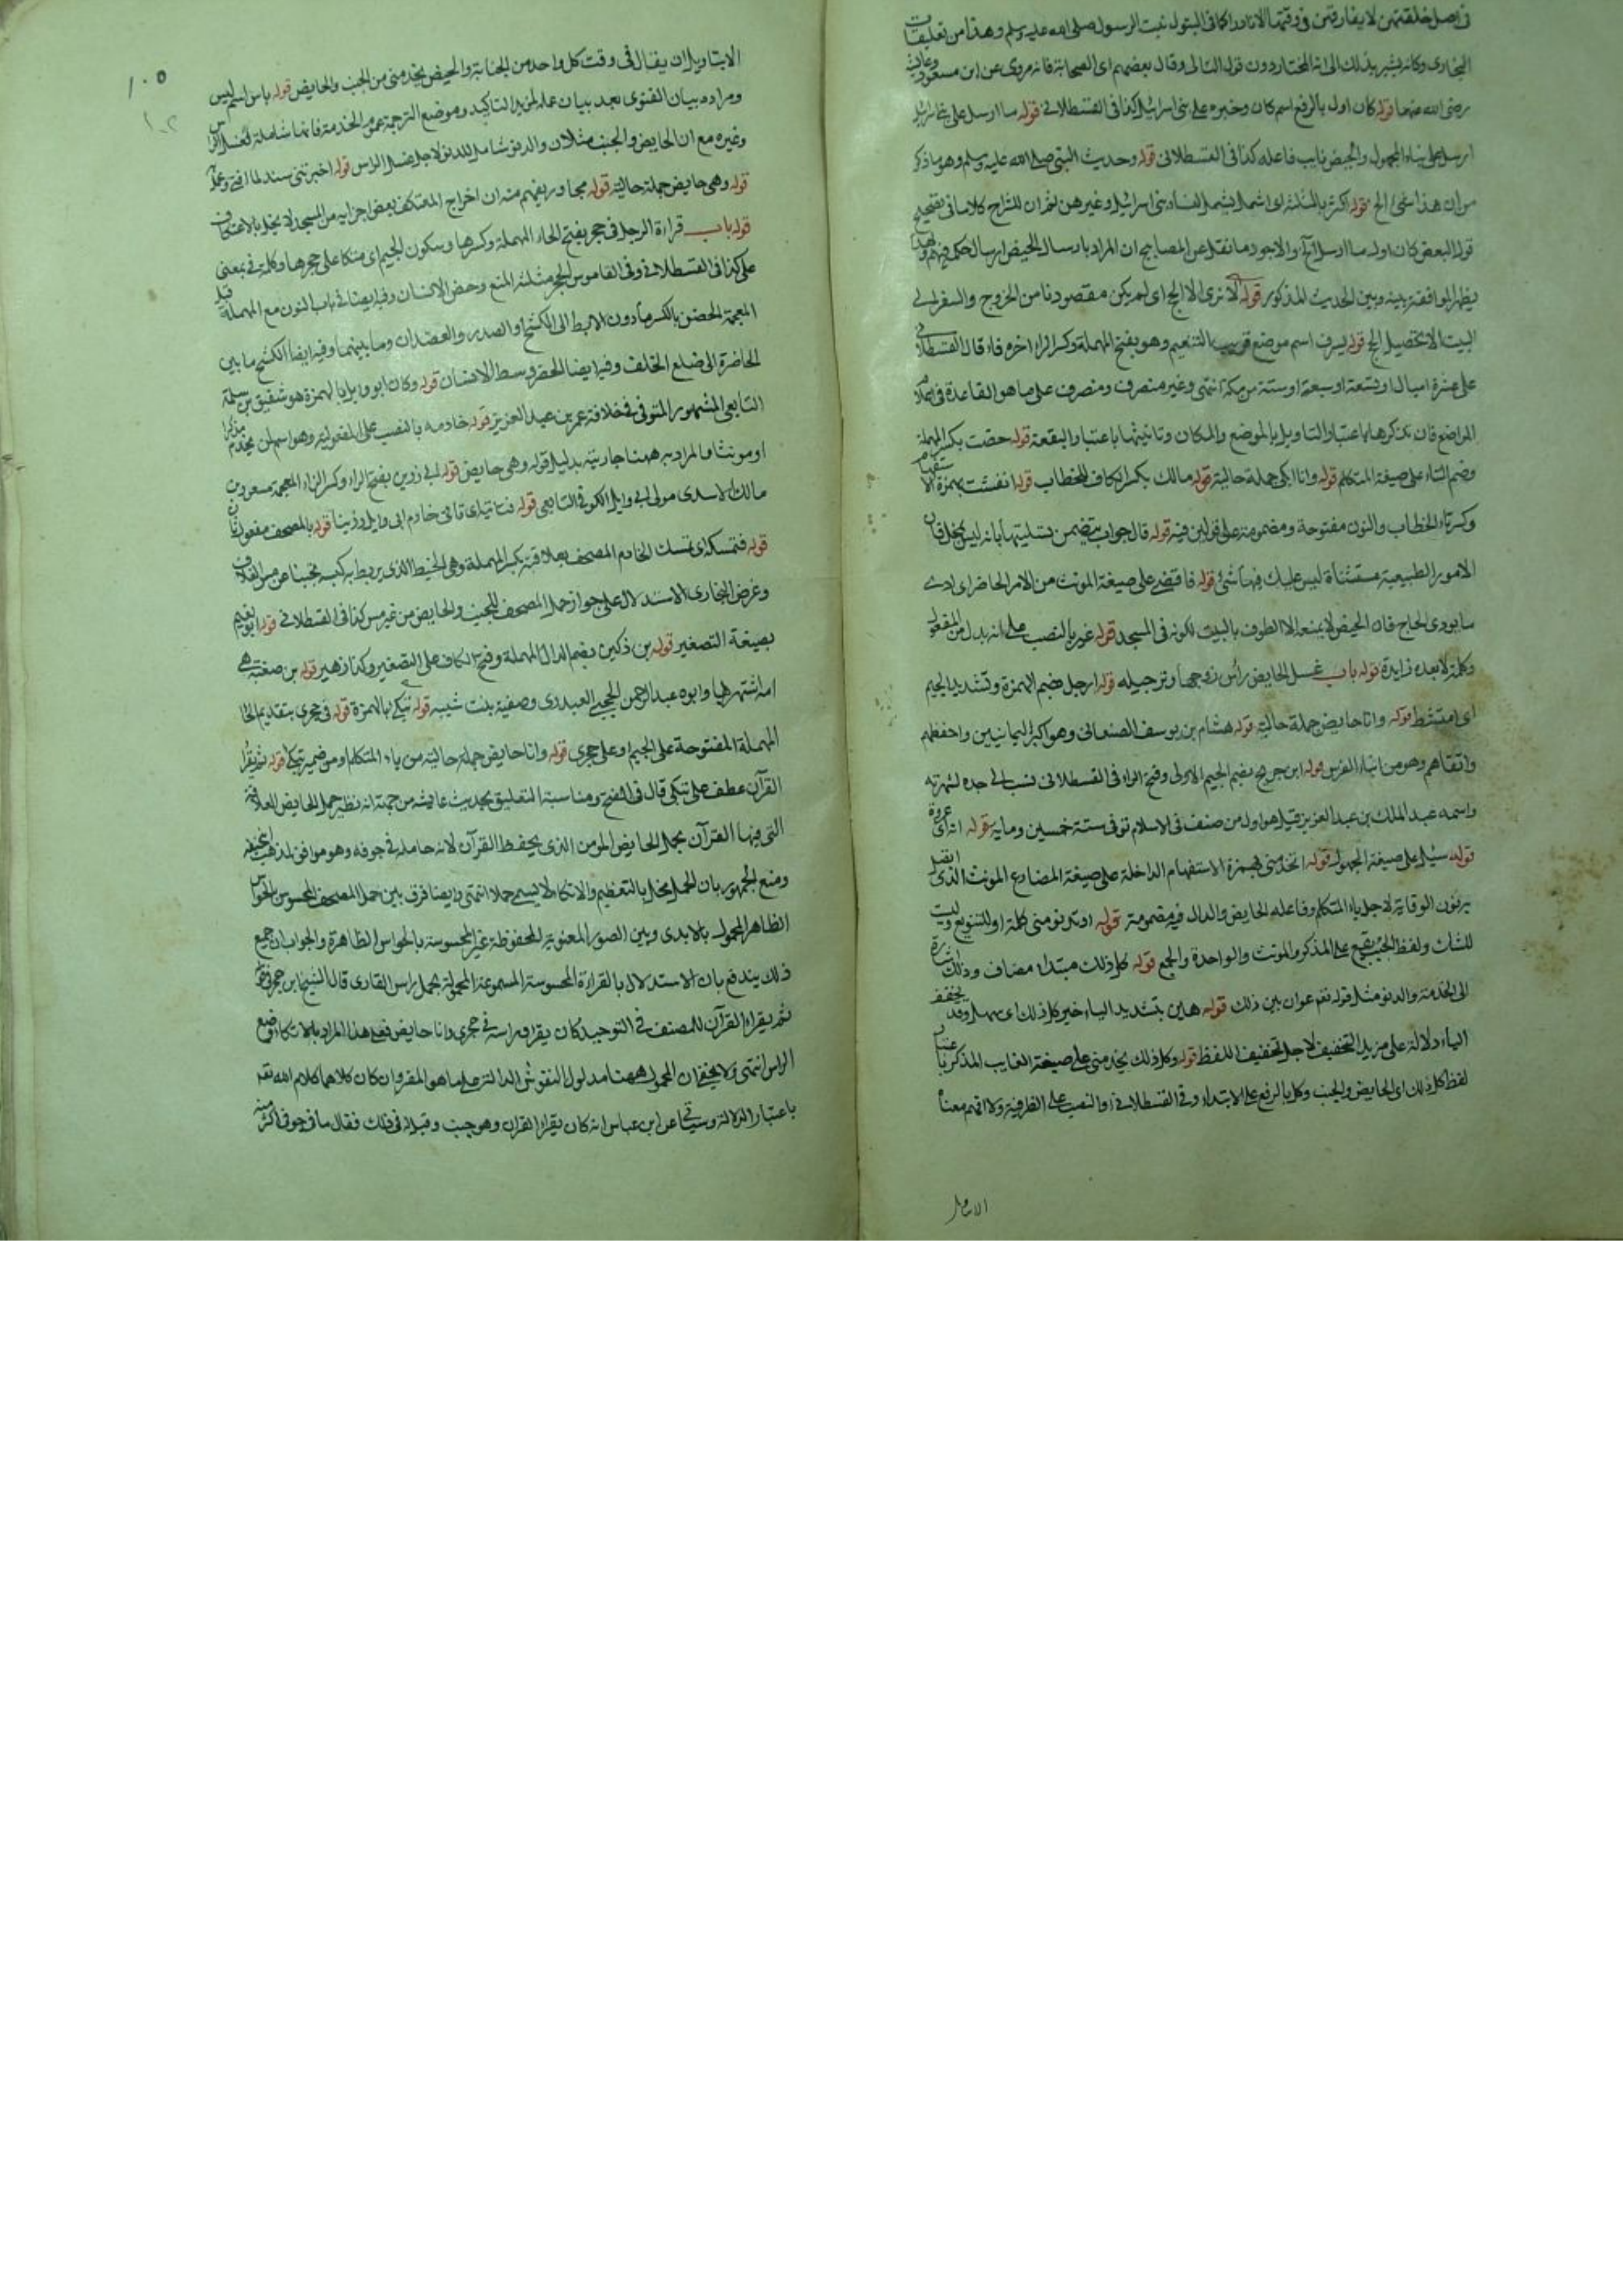 في اصل خلقتهن لا يفارقهن في وقتها الا نادرا كما في البتول بنت الرسول صلى الله عليه وسلم وهذا من تعليقات
البخاري وكانه يشير بذلك الى انه المختار دون قوله التالى وقال بعضهم اى الصحابة فانه مروى عن ابن مسعود وعائشة
رضى الله عنهما قوله كان اول بالرفع اسم كان وخبره على بنى اسرائيل كذا في القسطلاني قوله ما ارسل على بنى اسرائيل
ارسل على بناء المجهول والحيض نايب فاعله كذا في القسطلاني قوله وحديث النبي صلى الله عليه وسلم وهو ما ذكر
من ان هذا شئ الخ قوله اكثر بالمثلثة اى اشمل لشمول نساء بنى اسرائيل وغيرهن ثم ان للشراح كلاما في تصحيح
قول البعض كان اول ما ارسل الخ والاجود ما نقل عن المصابيح ان المراد بارسال الحيض ارسال حكمه
يظهر الموافقة بينه وبين الحديث المذكور قوله لا نرى الا الحج اى لم يكن مقصودنا من الخروج والسفر الى
البيت الا تحصيل الحج قوله بسرف اسم موضع قريب التنعيم وهو بفتح المهملة وكسر الراء اخره فاء قال القسطلاني
على عشرة اميال او تسعة او سبعة او ستة من مكة انتهى وغير منصرف ومنصرف على ما هو القاعدة في اسماء
المواضع فان تذكيرها باعتبار التاويل بالموضع والمكان وتانيثها باعتبار البقعة قوله حضت بكسر المهملة
وضم التاء على صيغة المتكلم قوله وانا ابكي جملة حالية قوله مالك بكسر الكاف للخطاب قوله انفست بهمزة الاستفهام
وكسر تاء الخطاب والنون مفتوحة ومضمومة على قولين فيه قوله قال جواب يتضمن تسليتها بانه ليس
الامور الطبيعية مستثناة ليس عليك فيها شئ قوله فاقضى على صيغة المونث من الامر الحاضر اى ادى
ما يودى الحاج فان الحيض لا يمنع الا الطوف بالبيت لكونه في المسجد قوله غير بالنصب على انه بدل من المفعول
وكلمة لا بعده زايدة قوله باب غسل الحايض رأس زوجها وترجيله قوله ارجل بضم الهمزة وتشديد الجيم
اى امتشط قوله وانا حايض جملة حالية قوله هشام بن يوسف الصنعاني وهو اكبر اليمانيين واحفظهم
واتقاهم وهو من ابناء الفرس قوله ابن جريج بضم الجيم الاولى وفتح الراء في القسطلاني نسب الى جده لشهرته به
واسمه عبد الملك بن عبد العزيز قيل هو اول من صنف في الاسلام توفى سنة خمسين وماية قوله انه اى عروة
قوله سئل على صيغة المجهول قوله اتخدمنى بهمزة الاستفهام الداخلة على صيغة المضارع المونث الذى اتصل
به نون الوقاية لاجل ياء المتكلم وفاعله الحايض والدال فيه مضمومة قوله او تدنو منى كلمة او للتنويع وليست
للشك ولفظ الجنب يقع على المذكر والمونث والواحدة والجمع قوله كل ذلك مبتدا مضاف وذلك اشارة
الى الخدمة والدنو مثل قوله تعم عوان بين ذلك قوله هين بتشديد الياء خبر كل ذلك اى سهل وقد يخفف
الياء دلالة على مزيد التخفيف لاجل تخفيف اللفظ قوله وكل ذلك يخدمنى على صيغة الغايب المذكر باعتبار
لفظ كل ذلك اى الحايض والجنب وكل بالرفع على الابتداء وفي القسطلاني او النصب على الظرفية ولا افهم معناه
الا بتاويل
١٠٥
١٠٢
الا بتاويل ان يقال في وقت كل واحد من الجنابة والحيض يخدمنى من الجنب والحايض قوله باس اسم ليس
ومراده بيان الفتوى بعد بيان عمله لمزيد التاكيد وموضع الترجمة عموم الخدمة فانها شاملة لغسل الراس
وغيره مع ان الحايض والجنب مثلان والدنو شامل للدنو لاجل غسل الراس قوله اخبرتنى سند لما افتى وعمل
قوله وهى حايض جملة حالية قوله مجاور يفهم منه ان اخراج المعتكف بعض اجزايه من المسجد لا يخل بالاعتكاف
قوله باب قراءة الرجل في حجر بفتح الحاء المهملة وكسرها وسكون الجيم اى متكا على حجرها وكلمة في بمعنى
على كذا في القسطلاني وفى القاموس الحجر مثلثة المنع وحضن الانسان وفيه ايضا في باب النون مع المهملة قبل
المعجمة الحضن بالكسر ما دون الابط الى الكشح او الصدر والعضدان وما بينهما وفيه ايضا الكشح ما بين
الخاصرة الى ضلع الخلف وفيه ايضا الخصر وسط الانسان قوله وكان ابو وايل بالهمزة هو شقيق بن سلمة
التابعى المشهور المتوفى في خلافة عمر بن عبد العزيز قوله خادمه بالنصب على المفعولية وهو اسم لمن يخدم مذكرا
او مونثا والمراد به ههنا جاريته بدليل قوله وهى حايض قوله ابى رزين بفتح الراء وكسر الزاء المعجمة مسعود بن
مالك الاسدى مولى ابى وايل الكوفى التابعى قوله فتاتيه اى تاتى خادم ابى وايل رزينا قوله بالمصحف مفعول ثان
قوله فتمسكه اى تمسك الخادم المصحف بعلاقته بكسر المهملة وهى الخيط الذى يربط به كيسه تجنبا عن مس الغلاف
وغرض البخارى الاستدلال على جواز حمل المصحف للجنب والحايض من غير مس كذا في القسطلاني قوله ابو نعيم
بصيغة التصغير قوله بن دكين بضم الدال المهملة وفتح الكاف على التصغير وكذا زهير قوله بن صفية هى
امه اشتهر بها وابوه عبد الرحمن الحجبي العبدرى وصفية بنت شيبة قوله يتكى بالهمزة قوله في حجرى بتقديم الحاء
المهملة المفتوحة على الجيم اى على حجرى قوله وانا حايض جملة حالية من ياء المتكلم او من ضمير يتكى قوله ثم يقرا
القرآن عطف على يتكى قال في الفتح ومناسبة التعليق بحديث عايشة من جهة انه نظير حمل الحايض العلاقة
التى فيها القرآن بحمل الحايض المومن الذى يحفظ القرآن لانه حامله في جوفه وهو موافق لمذهب ابى حنيفة
ومنع الجمهور بان الحمل مخل بالتعظيم والاتكاء لا يسمى حملا انتهى وايضا فرق بين حمل المصحف المحسوس بالحواس
الظاهر المحمول بالايدى وبين الصور المعنوية المحفوظة غير المحسوسة بالحواس الظاهرة والجواب ان جميع
ذلك يندفع بان الاستدلال بالقراءة المحسوسة المسموعة المحمولة بحمل راس القارى قال الشيخ ابن حجر قوله
ثم يقراء القرآن للمصنف في التوحيد كان يقرا وراسه في حجرى وانا حايض فعلى هذا المراد بالاتكاء وضع
الراس انتهى ولا يخفى ان المحمول ههنا مدلول النقوش الدالة على ما هو المقرو وان كان كلاهما كلام الله تعم
باعتبار الدلالة وسياتى عن ابن عباس انه كان يقرا القرآن وهو جنب وقيل له في ذلك فقال ما في جوفى اكثر منه